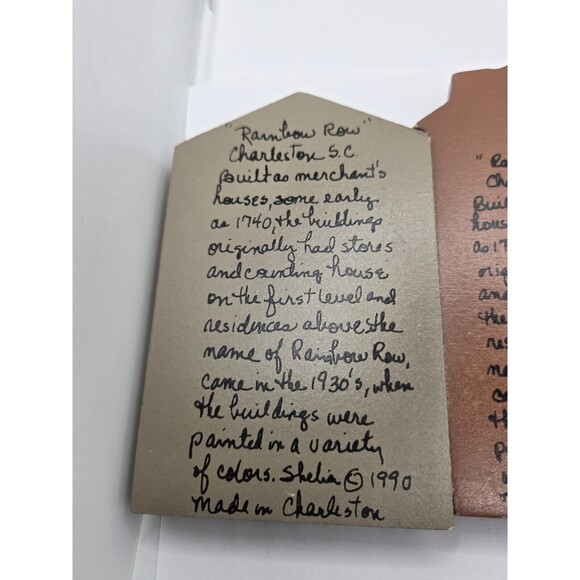 "Rainbow Row"
Charleston S.C.
Built as merchant's
houses, some early
as 1740, the buildings
originally had stores
and counting house
on the first level and
residences above. the
name of Rainbow Row,
came in the 1930's, when
the buildings were
painted in a variety
of colors. Shelia © 1990
Made in Charleston